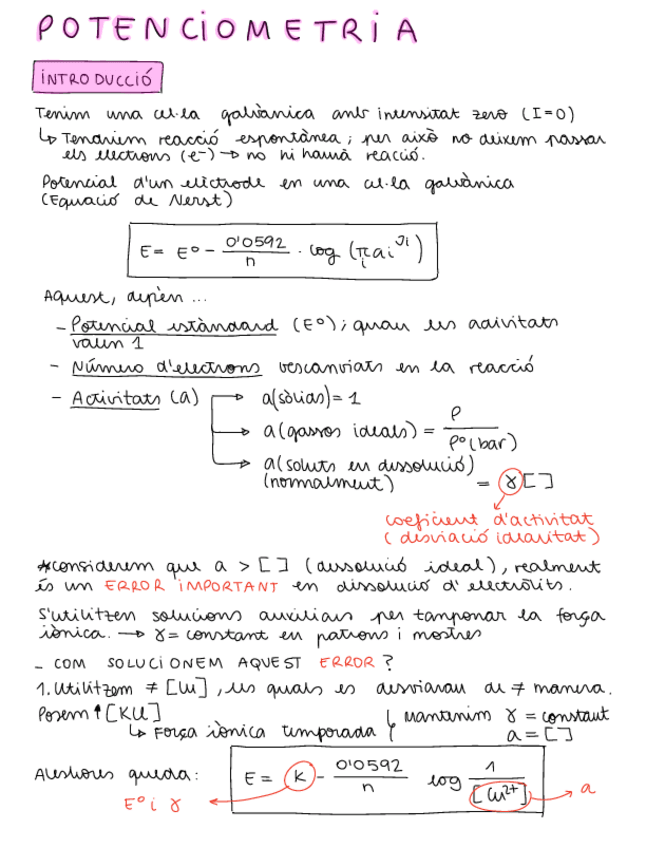 POTENCIOMETRIA
INTRODUCCIÓ
Tenim una cel·la galvànica amb intensitat zero (I=0)
↳ Tendriem reacció espontànea; per això no deixem passar
els electrons (e⁻) → no hi haurà reacció.
Potencial d'un elèctrode en una cel·la galvànica
(Equació de Nerst)
E = E° - 0'0592/n · log (πᵢ aᵢ^νᵢ)
Aquest, depèn ...
- Potencial estàndard (E°); quan les activitats
valen 1
- Número d'electrons bescanviats en la reacció
- Activitats (a) → a(sòlids) = 1
→ a(gasos ideals) = P / P°(bar)
→ a(soluts en dissolució)
(normalment) = γ[]
coeficient d'activitat
(desviació idealitat)
*considerem que a > [] (dissolució ideal), realment
és un ERROR IMPORTANT en dissolució d'electròlits.
S'utilitzen solucions auxiliars per tamponar la força
iònica. → γ = constant en patrons i mostres
- COM SOLUCIONEM AQUEST ERROR?
1. Utilitzem ≠ [Cu], les quals es desviaran de ≠ manera.
Posem ↑[KCl]
↳ Força iònica temporada { Mantenim γ = constant
a = []
Aleshores queda: E = K - 0'0592/n log 1/[Cu²⁺] → a
E° i γ